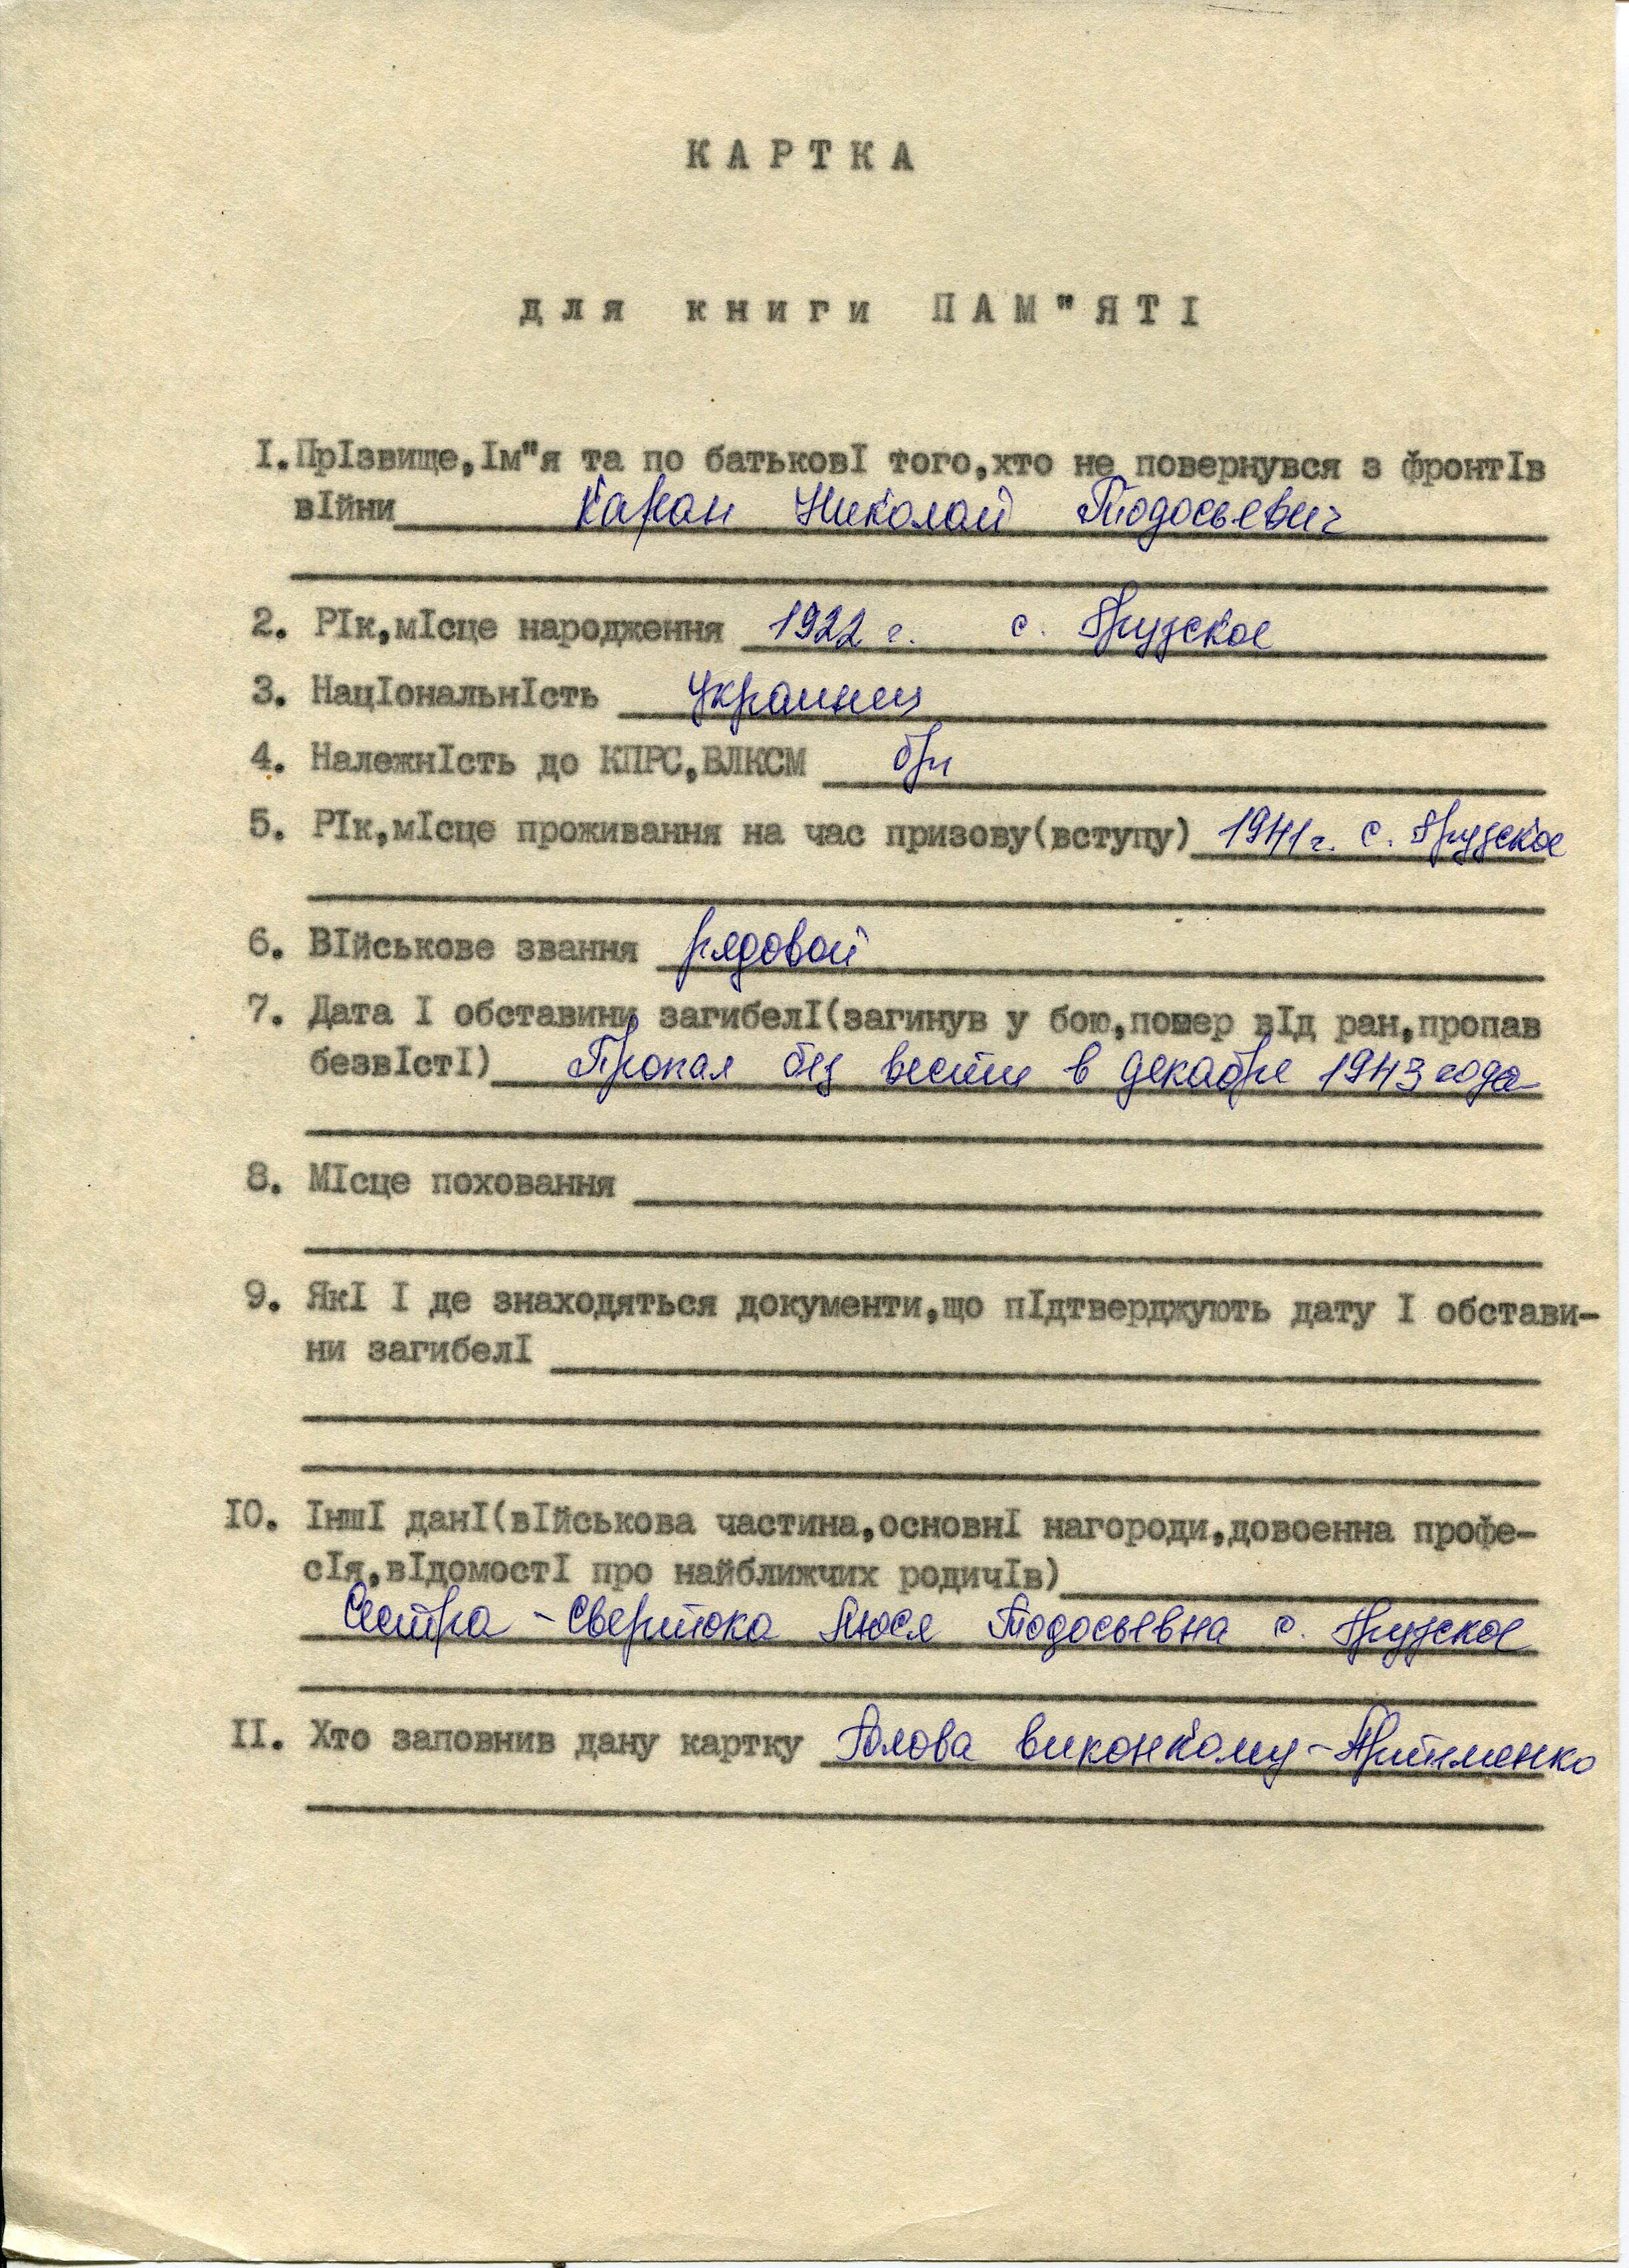 КАРТКА
для книги ПАМ"ЯТІ
I. ПрIзвище, Iм"я та по батьковI того, хто не повернувся з фронтIв
вIйни Каран Николай Тодосьевич
2. РIк, мIсце народження 1922 г. с. Грузское
3. НацIональнIсть Украинец
4. НалежнIсть до КПРС, ВЛКСМ
5. РIк, мIсце проживання на час призову(вступу) 1941 г. с. Грузское
6. ВIйськове звання рядовой
7. Дата I обставини загибелI(загинув у бою, помер вIд ран, пропав
безвIстI) Пропал без вести в декабре 1943 года
8. МIсце поховання
9. ЯкI I де знаходяться документи, що пIдтверджують дату I обстави-
ни загибелI
IO. IншI данI(вIйськова частина, основнI нагороди, довоенна профе-
сIя, вIдомостI про найближчих родичIв)
Сестра - Свертока Люся Тодосьевна с. Грузское
II. Хто заповнив дану картку Голова виконкому -